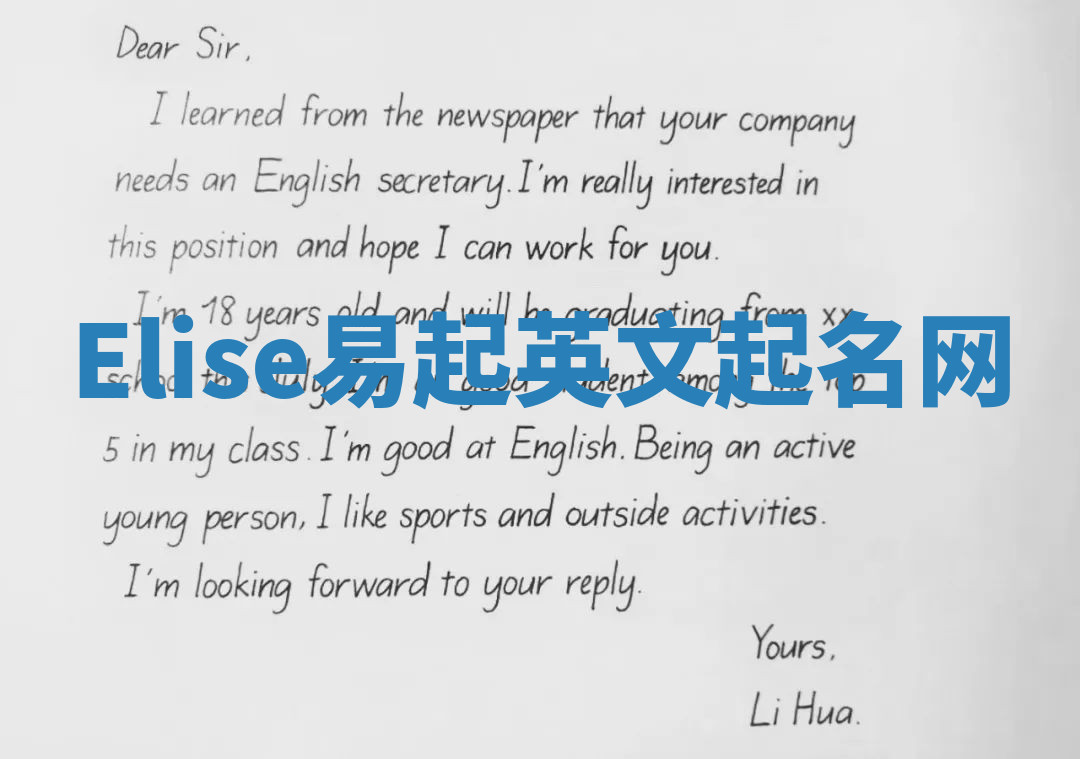 Dear Sir,
I learned from the newspaper that your company
needs an English secretary. I'm really interested in
this position and hope I can work for you.
I'm 18 years old and will be graduating from xx
Elise易起英文起名网
school this July. I'm a good student among the top
5 in my class. I'm good at English. Being an active
young person, I like sports and outside activities.
I'm looking forward to your reply.
Yours,
Li Hua.